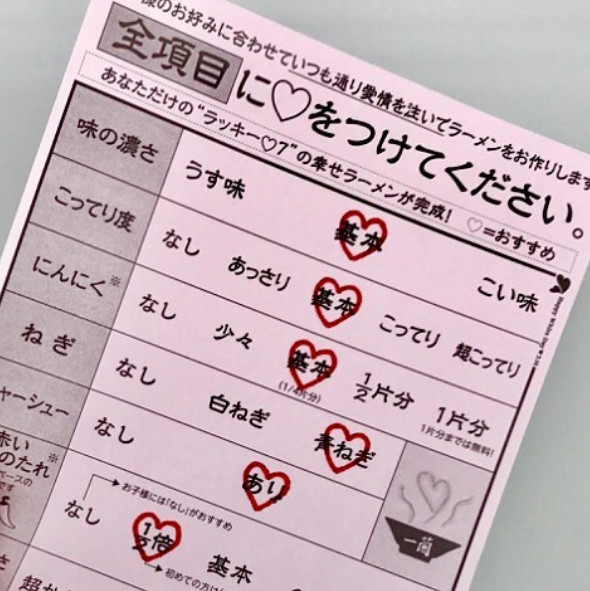 様のお好みに合わせていつも通り愛情を注いでラーメンをお作りします
全項目に♡をつけてください。
あなただけの"ラッキー♡7"の幸せラーメンが完成! ♡=おすすめ
味の濃さ うす味 基本 こい味
こってり度 なし あっさり 基本 こってり 超こってり
にんにく※ なし 少々 基本 1/2片分 1片分
(1/4片分) 1片分までは無料!
ねぎ なし 白ねぎ 青ねぎ
ャーシュー なし あり
赤い
のたれ※
ースの
です
お子様には「なし」がおすすめ
なし 1/2倍 基本
初めての方は
さ
超か
一蘭